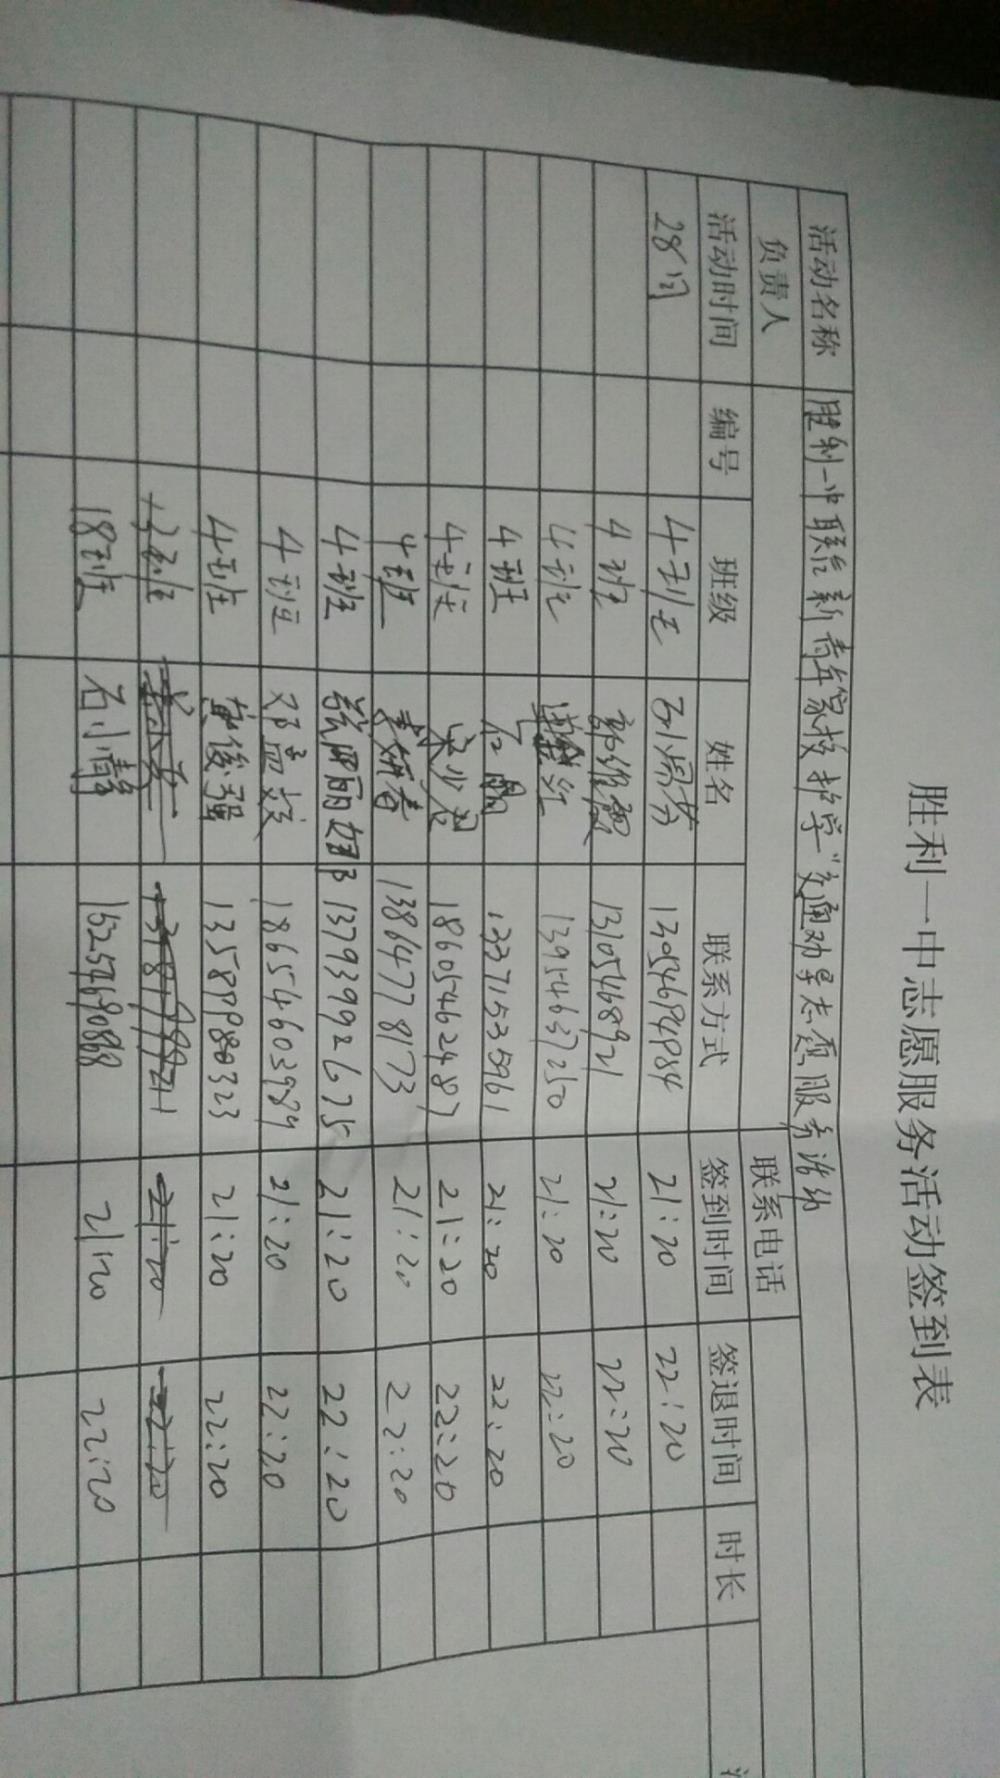 胜利一中志愿服务活动签到表
活动名称 胜利一中联合新青年家校护学"交通劝导志愿服务活动
负责人 联系电话
活动时间 编号 班级 姓名 联系方式 签到时间 签退时间 时长
28日 4班 13054694984 21:20 22:20
4班 13105468921 21:20 22:20
4班 13954637250 21:20 22:20
4班 石 13371535961 21:20 22:20
4班 宋少君 18605462487 21:20 22:20
4班 李妍春 13864778173 21:20 22:20
4班 张丽娜 13793992675 21:20 22:20
4班 邓孟姣 18654603989 21:20 22:20
4班 黄俊强 13589980323 21:20 22:20
13班 21:20 22:20
18班 石小静 21:20 22:20